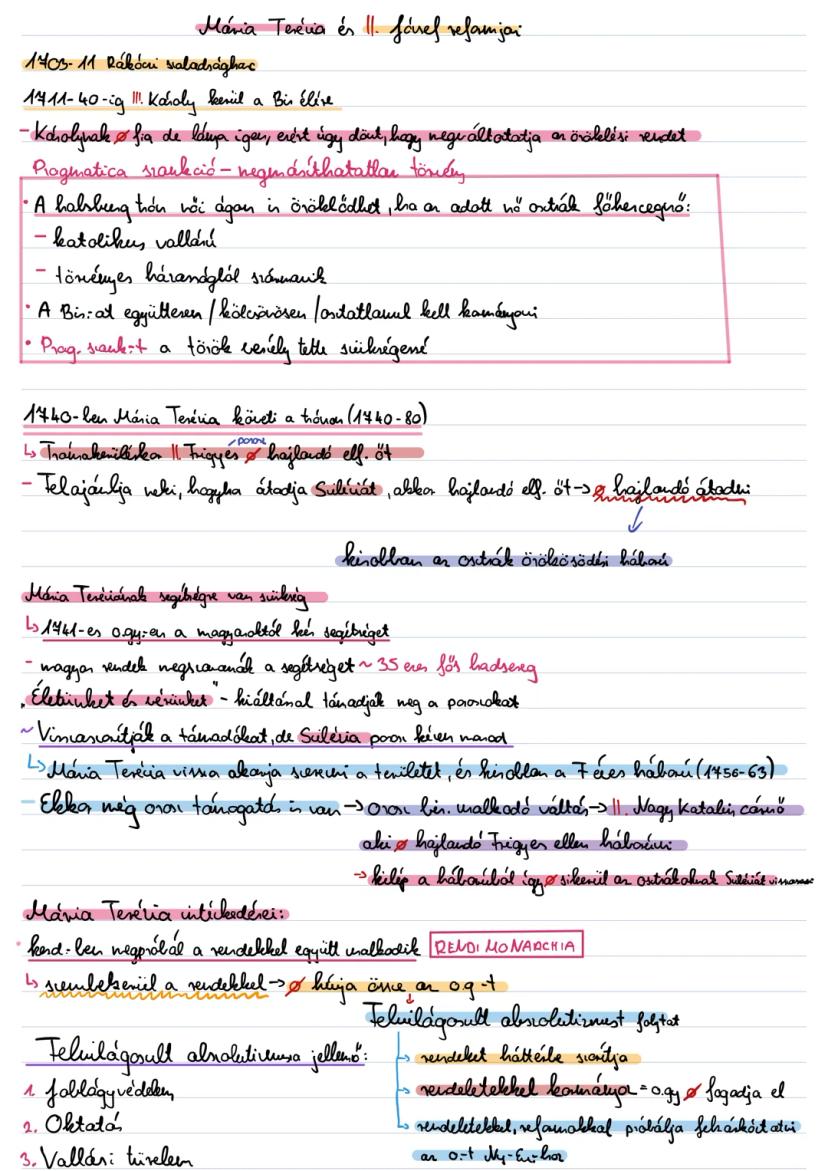 Mária Terézia és II. József reformjai
1703-11 Rákóczi szabadságharc
1711-40-ig III. Károly kerül a Bir. élére
- Károlynak ∅ fia de lánya igen, ezért úgy dönt, hogy megváltoztatja az öröklési rendet
Pragmatica szankció – megmásíthatatlan törvény
• A habsburg trón női ágon is öröklődhet, ha az adott nő osztrák főhercegnő:
- katolikus vallású
- törvényes házasságból származik
• A Bir.-at együttesen / kölcsönösen / osztatlanul kell kormányozni
• Prag. szank.-t a török veszély tette szükségessé
1740-ben Mária Terézia követi a trónon (1740-80)
porosz
↳ Trónrakerüléskor II. Frigyes ∅ hajlandó elf. őt
- Felajánlja neki, hogyha átadja Sziléziát, akkor hajlandó elf. őt → ∅ hajlandó átadni
↓
kirobban az osztrák örökösödési háború
Mária Teréziának segítségre van szükség
↳ 1741-es o.gy.-en a magyaroktól kér segítséget
- magyar rendek megszavazzák a segítséget ~ 35 ezer fős hadsereg
„Életünket és vérünket" - kiáltással támadják meg a poroszokat
~ Visszaszorítják a támadókat, de Szilézia porosz kézen marad
↳ Mária Terézia vissza akarja szerezni a területet, és kirobban a 7 éves háború (1756-63)
- Ekkor még orosz támogatás is van → orosz bir. uralkodó váltás → II. Nagy Katalin cárnő
aki ∅ hajlandó Frigyes ellen háborúzni
→ kilép a háborúból így ∅ sikerül az osztrákoknak Sziléziát visszaszerezni
Mária Terézia intézkedései:
• kezd.-ben megpróbál a rendekkel együtt uralkodik RENDI MONARCHIA
↳ szembekerül a rendekkel → ∅ hívja össze az o.g-t
↓
Felvilágosult abszolutizmust folytat
Felvilágosult abszolutizmusa jellemző:
→ rendeket háttérbe szorítja
1. Jobbágyvédelem
→ rendeletekkel kormányoz = o.gy ∅ fogadja el
2. Oktatás
→ rendeletekkel, reformokkal próbálja felzárkóztatni
3. Vallási türelem
az o-t Ny-Eu-hoz